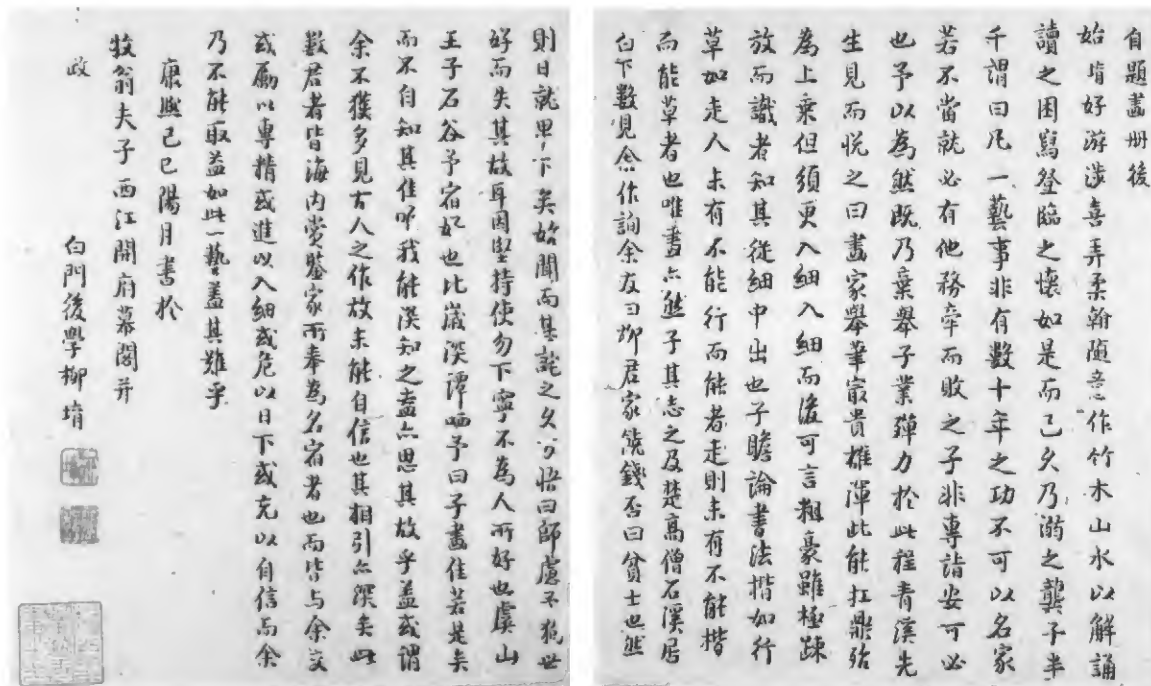 自題畫册後
始堉好游涉喜弄柔翰隨意作竹木山水以解誦
讀之困寫登臨之懷如是而已久乃溺之龔子半
千謂曰凡一藝事非有數十年之功不可以名家
若不當就必有他務牽而敗之子非專詣安可必
也予以為然既乃棄舉子業殫力於此程青溪先
生見而悅之曰畫家舉筆最貴雄渾此能扛鼎殆
為上乘但須更入細入細而後可言粗豪雖極疎
放而識者知其從細中出也子瞻論書法楷如行
草如走人未有不能行而能者走則未有不能楷
而能草者也唯畫亦然子其志之及楚高僧石溪居
白下數見余作詢余友曰柳君家饒錢否曰貧士也然
則日就卑下矣始聞而甚詫之久乃悟曰師慮不狥世
好而失其故耳因堅持使勿下寧不為人所好也虞山
王子石谷予宿好也比歲深譚晒予曰子畫佳若是矣
而不自知其佳唯我能深知之盍亦思其故乎蓋或謂
余不獲多見古人之作故未能自信也其相引亦深矣此
數君者皆海內賞鑒家所奉為名宿者也而皆与余交
或厲以專精或進以入細或危以日下或充以自信而余
乃不能取益如此一藝蓋其難乎
康熙己巳陽月書於
牧翁夫子西江開府幕閣并
政
白門後學柳堉